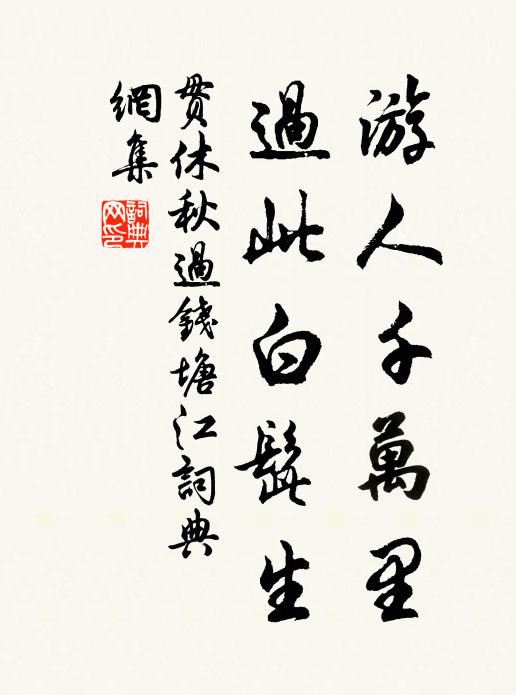 游人千萬里
過此白髭生
貫休秋過錢塘江詞典
網集
詞典網印